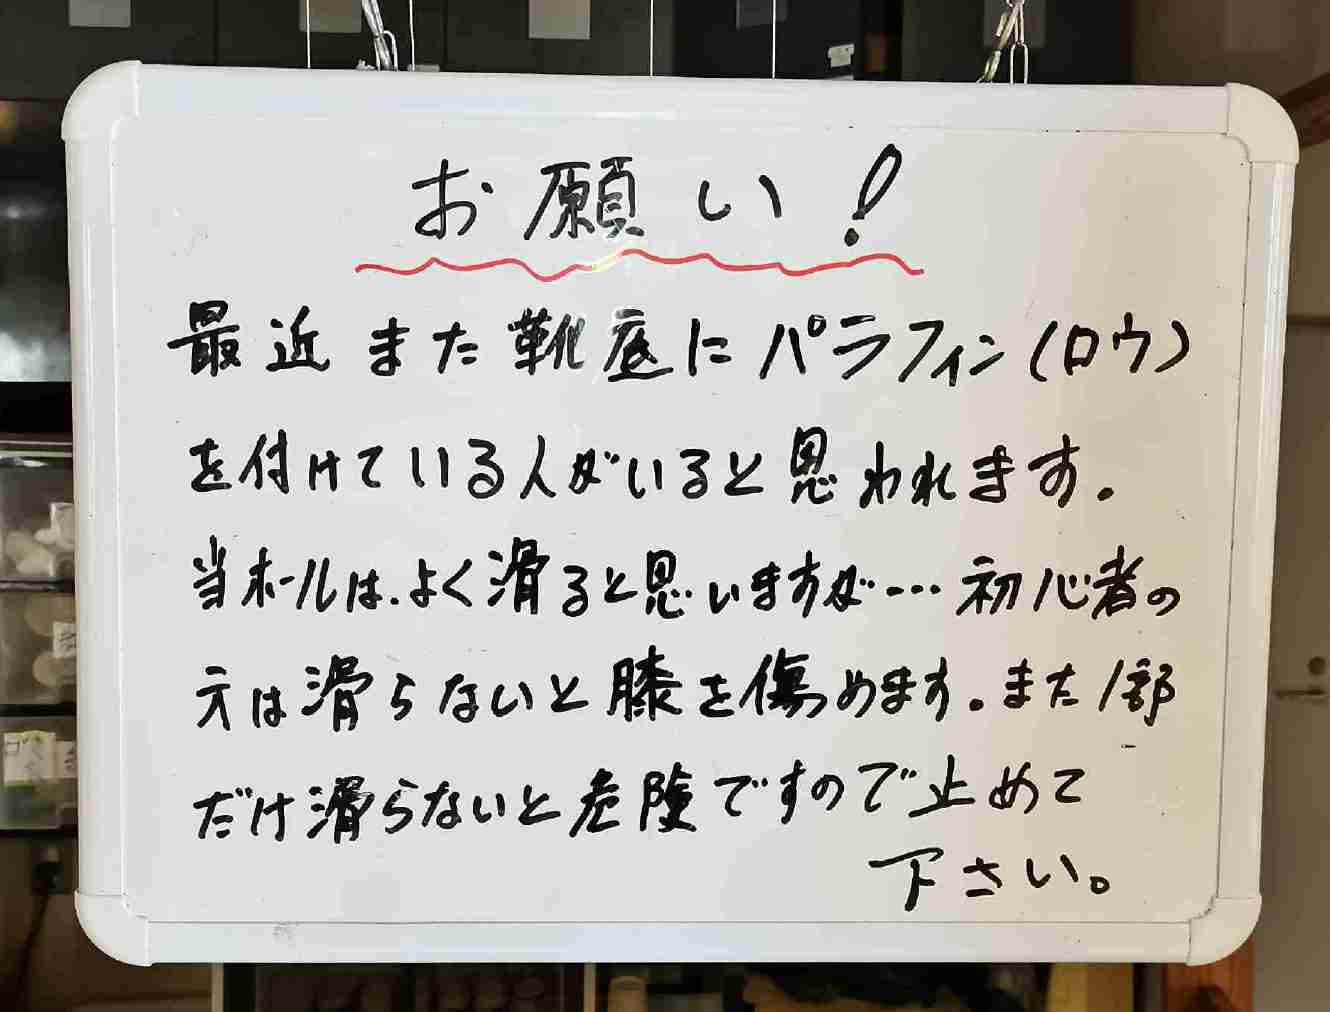 お願い！
最近また靴底にパラフィン（ロウ）
を付けている人がいると思われます。
当ホールは、よく滑ると思いますが…初心者の
方は滑らないと膝を傷めます。また1部
だけ滑らないと危険ですので止めて
下さい。